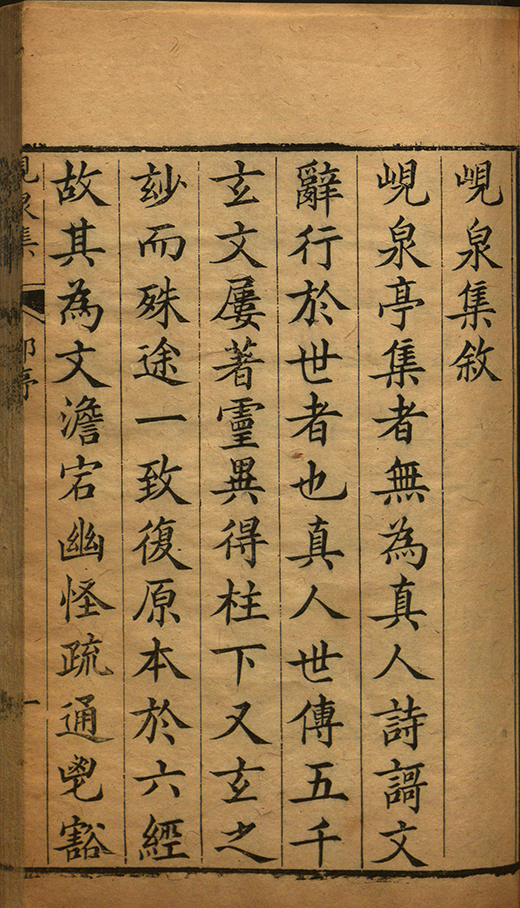 峴泉集敘
峴泉亭集者無為真人詩謌文
辭行於世者也真人世傳五千
玄文屢著靈異得柱下又玄之
玅而殊途一致復原本於六經
故其為文澹宕幽怪疏通鬯豁
峴泉集
一